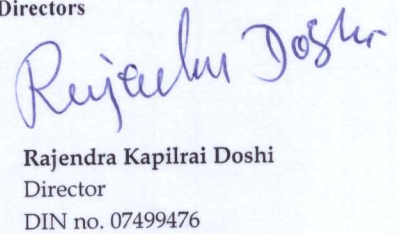 Directors
Rajendra Doshi
Rajendra Kapilrai Doshi
Director
DIN no. 07499476